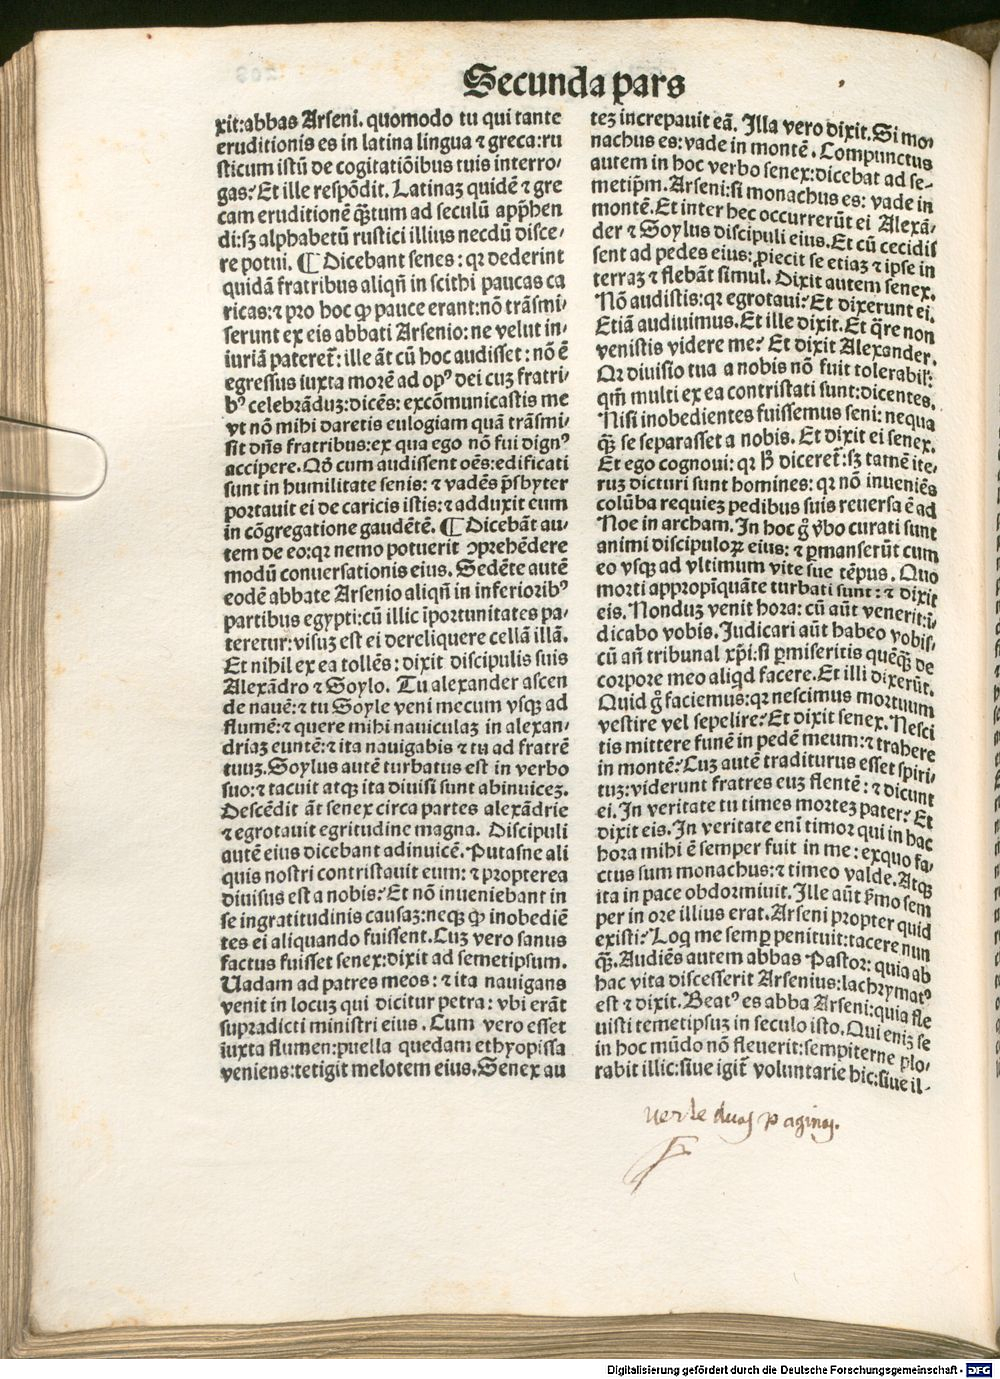 Secunda pars
xit:abbas Arseni. quomodo tu qui tante
eruditionis es in latina lingua ⁊ greca:ru
sticum istū de cogitatiōibus tuis interro-
gas? Et ille respōdit. Latinaʒ quidē ⁊ gre
cam eruditionē q̄ꝫtum ad seculū app̄hen
di:sꝫ alphabetū rustici illius necdū disce-
re potui. ¶ Dicebant senes: qꝛ dederint
quidā fratribus aliqn̄ in scithi paucas ca
ricas:⁊ pro hoc ꝙ pauce erant:nō trāsmi-
serunt ex eis abbati Arsenio: ne velut in-
iuriā pateret̄: ille āt cū hoc audisset: nō ē
egressus iuxta morē ad opꝰ dei cuʒ fratri-
bꝰ celebrāduʒ:dicēs: excōmunicastis me
vt nō mihi daretis eulogiam quā trāsmi-
sit dn̄s fratribus:ex qua ego nō fui dignꝰ
accipere. Qḋ cum audissent oēs:edificati
sunt in humilitate senis: ⁊ vadēs p̄sbyter
portauit ei de caricis istis:⁊ adduxit eum
in cōgregatione gaudētē. ¶ Dicebāt au-
tem de eo:qꝛ nemo potuerit ꝯprehēdere
modū conuersationis eius. Sedēte autē
eodē abbate Arsenio aliqn̄ in inferioribꝰ
partibus egypti:cū illic īportunitates pa-
teretur:visuʒ est ei derelinquere cellā illā.
Et nihil ex ea tollēs: dixit discipulis suis
Alexādro ⁊ Soylo. Tu alexander ascen
de nauē:⁊ tu Soyle veni mecum vsqꝫ ad
flumē:⁊ quere mihi nauiculaʒ in alexan-
driaʒ euntē:⁊ ita nauigabis ⁊ tu ad fratrē
tuuʒ. Soylus autē turbatus est in verbo
suo:⁊ tacuit atqꝫ ita diuisi sunt abinuiceʒ.
Descēdit āt senex circa partes alexādrie
⁊ egrotauit egritudine magna. Discipuli
autē eius dicebant adinuicē. Putasne ali
quis nostri contristauit eum: ⁊ propterea
diuisus est a nobis? Et nō inueniebant in
se ingratitudinis causaʒ:neqꝫ ꝙ inobediē
tes ei aliquando fuissent. Cuʒ vero sanus
factus fuisset senex:dixit ad semetipsum.
Uadam ad patres meos: ⁊ ita nauigans
venit in locuʒ qui dicitur petra: vbi erāt
supradicti ministri eius. Cum vero esset
iuxta flumen:puella quedam ethyopissa
veniens:tetigit melotem eius. Senex au
teʒ increpauit eā. Illa vero dixit. Si mo-
nachus es: vade in montē. Compunctus
autem in hoc verbo senex:dicebat ad se-
metip̄m. Arseni:si monachus es: vade in
montē. Et inter hec occurrerūt ei Alexā-
der ⁊ Soylus discipuli eius. Et cū cecidis
sent ad pedes eius: ꝓiecit se etiaʒ ⁊ ipse in
terraʒ ⁊ flebāt simul. Dixit autem senex.
Nō audistis:qꝛ egrotaui? Et dixerunt ei.
Etiā audiuimus. Et ille dixit. Et q̄re non
venistis videre me? Et dixit Alexander.
Qꝛ diuisio tua a nobis nō fuit tolerabil̓:
qm̄ multi ex ea contristati sunt:dicentes.
Nisi inobedientes fuissemus seni: nequa
q̄ꝫ se separasset a nobis. Et dixit ei senex.
Et ego cognoui: qꝛ h̄ diceret̄:sꝫ tamē ite-
ruʒ dicturi sunt homines: qꝛ nō inueniēs
colūba requieʒ pedibus suis reuersa ē ad
Noe in archam. In hoc g̊ v̓bo curati sunt
animi discipuloꝝ eius: ⁊ ꝑmanserūt cum
eo vsqꝫ ad vltimum vite sue tēpus. Quo
morti appropīquāte turbati sunt: ⁊ dixit
eis. Nonduʒ venit hora: cū aūt venerit:ī-
dicabo vobis. Judicari aūt habeo vobis-
cū an̄ tribunal xp̄i:si ꝑmiseritis quēq̄ꝫ de
corpore meo aliqd facere. Et illi dixerūt.
Quid g̊ faciemus:qꝛ nescimus mortuum
vestire vel sepelire? Et dixit senex. Nesci
tis mittere funē in pedē meum:⁊ trahere
in montē? Cuʒ autē traditurus esset spiri-
tuʒ:viderunt fratres euʒ flentē: ⁊ dicunt
ei. In veritate tu times morteʒ pater? Et
dixit eis. In veritate eni̅ timor qui in hac
hora mihi ē semper fuit in me: exquo fa-
ctus sum monachus:⁊ timeo valde. Atqꝫ
ita in pace obdormiuit. Ille aūt s̓mo sem
per in ore illius erat. Arseni propter quid
existi? Loq me semꝑ penituit:tacere nun
q̄ꝫ. Audiēs autem abbas Pastor: quia ab
hac vita discesserit Arsenius:lachrymatꝰ
est ⁊ dixit. Beatꝰ es abba Arseni:quia fle
uisti temetipsuʒ in seculo isto. Qui eniʒ se
in hoc mūdo nō fleuerit:sempiterne plo-
rabit illic:siue igit̄ voluntarie hic:siue il-
uerte duas paginas.
Digitalisierung gefördert durch die Deutsche Forschungsgemeinschaft - DFG